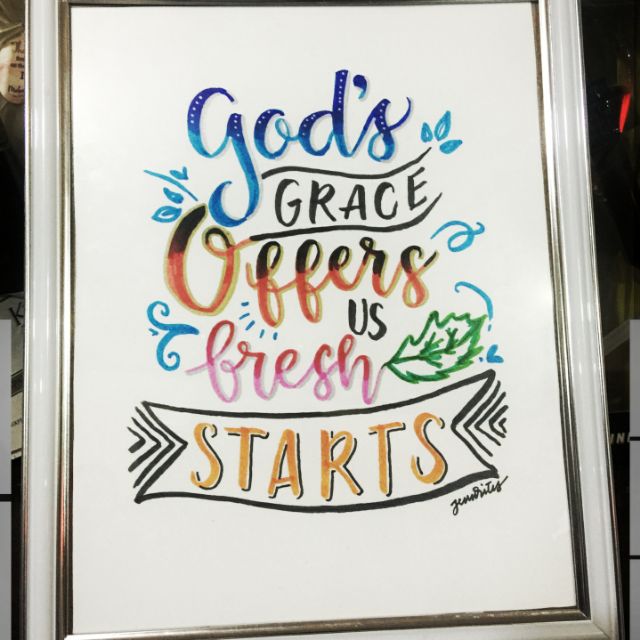 God's
GRACE
Offers
US
fresh
STARTS
jenwrites